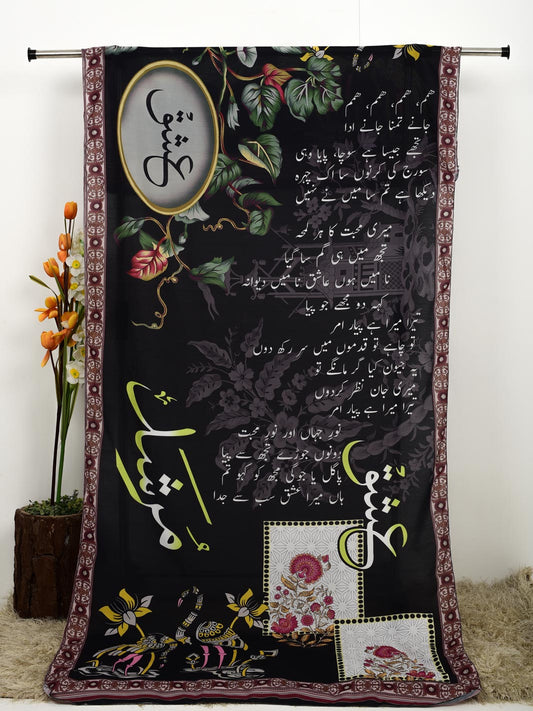 عشق
ہمم، ہمم، ہمم، ہمم
جانے تمنا جانے ادا
تجھے جیسا ہے سوچا، پایا وہی
سورج کی کرنوں سا اک چہرہ
دیکھا ہے تم سا میں نے نہیں
میری محبت کا ہر لمحہ
تجھ میں ہی گم سا گیا
نا میں ہوں عاشق نا میں دیوانہ
کہہ دو مجھے جو پیا
تیرا میرا ہے پیار امر
تو چاہے تو قدموں میں سر رکھ دوں
یہ جیون کیا گر مانگے تو
میری جان نظر کر دوں
تیرا میرا ہے پیار امر
نور جہاں اور نور محبت
دونوں جوڑے تجھ سے پیا
پاگل یا جوگی مجھ کو کہو تم
ہاں میرا عشق سب سے جدا
عشق
مرشد